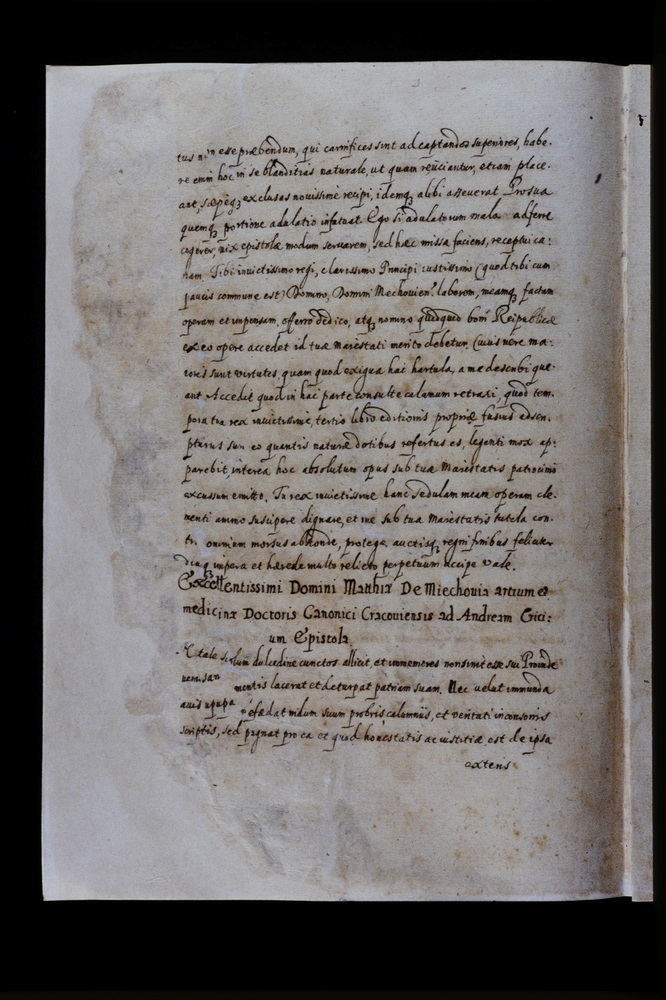 esse præbendum, qui carnifices sint ad captandos superiores, habe-
re enim hoc in se blanditias naturale, ut quam reijciantur, etiam place-
ant, sæpeq; exclusas novissime recipi, idemq; alibi asseverat Pro sua
quemq; portione adulatio infatuat. Ego si adulatorum mala adferre
cogerer, vix epistolæ modum servarem, sed hæc missa faciens, receptui ca:
nam. Tibi invictissimo regi, clarissimo Principi iustissimo (quod tibi cum
paucis commune est) Domino, Domini Mechovien: laborem, meamq; factam
operam et impensam, offerro dedico, atq; nomino quidquid boni Reipublicæ
ex eo opere accedet id tuæ maiestati merito debetur. Cuius vere ma:
iores sunt virtutes, quam quod exigua hac hartula, a me describi que-
ant Accedit quod in hac parte consulte calamum retraxi, quod tem-
pora tua rex invictissime, tertio libro editionis propriæ fusius adscri-
pturus sum eo quantis naturæ dotibus refertus es, legenti mox ap-
parebit, interea hoc absolutum opus sub tuæ Maiestatis patrocinio
excussum emitto. Tu rex invictissime hanc sedulam meam operam cle-
menti animo suscipere dignare, et me sub tua maiestatis tutela con-
omnium morsus absconde, protege auctisq; regni finibus feliciter
diuq; impera et hærede multo relicto perpetuum accipe vale.
Excellentissimi Domini Mathiæ De Miechovia artium et
medicinæ Doctoris Canonici Cracoviensis ad Andream Crici:
um Epistola
Natale solum dulcedine cunctos allicit, et immemores non sinit esse sui Proinde
nemo san mentis lacerat et deturpat patriam suam. Nec velut immunda
avis upupa fædat nidum suum probris calomniis, et veritati inconsonis
scriptis, sed pugnat pro ea et quod honestatis ac iustitiæ est de ipsa
extens